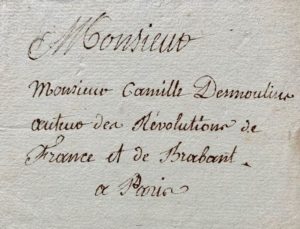 Monsieur
Monsieur Camille Desmoulins
auteur des Révolutions de
France et de Brabant.
a Paris